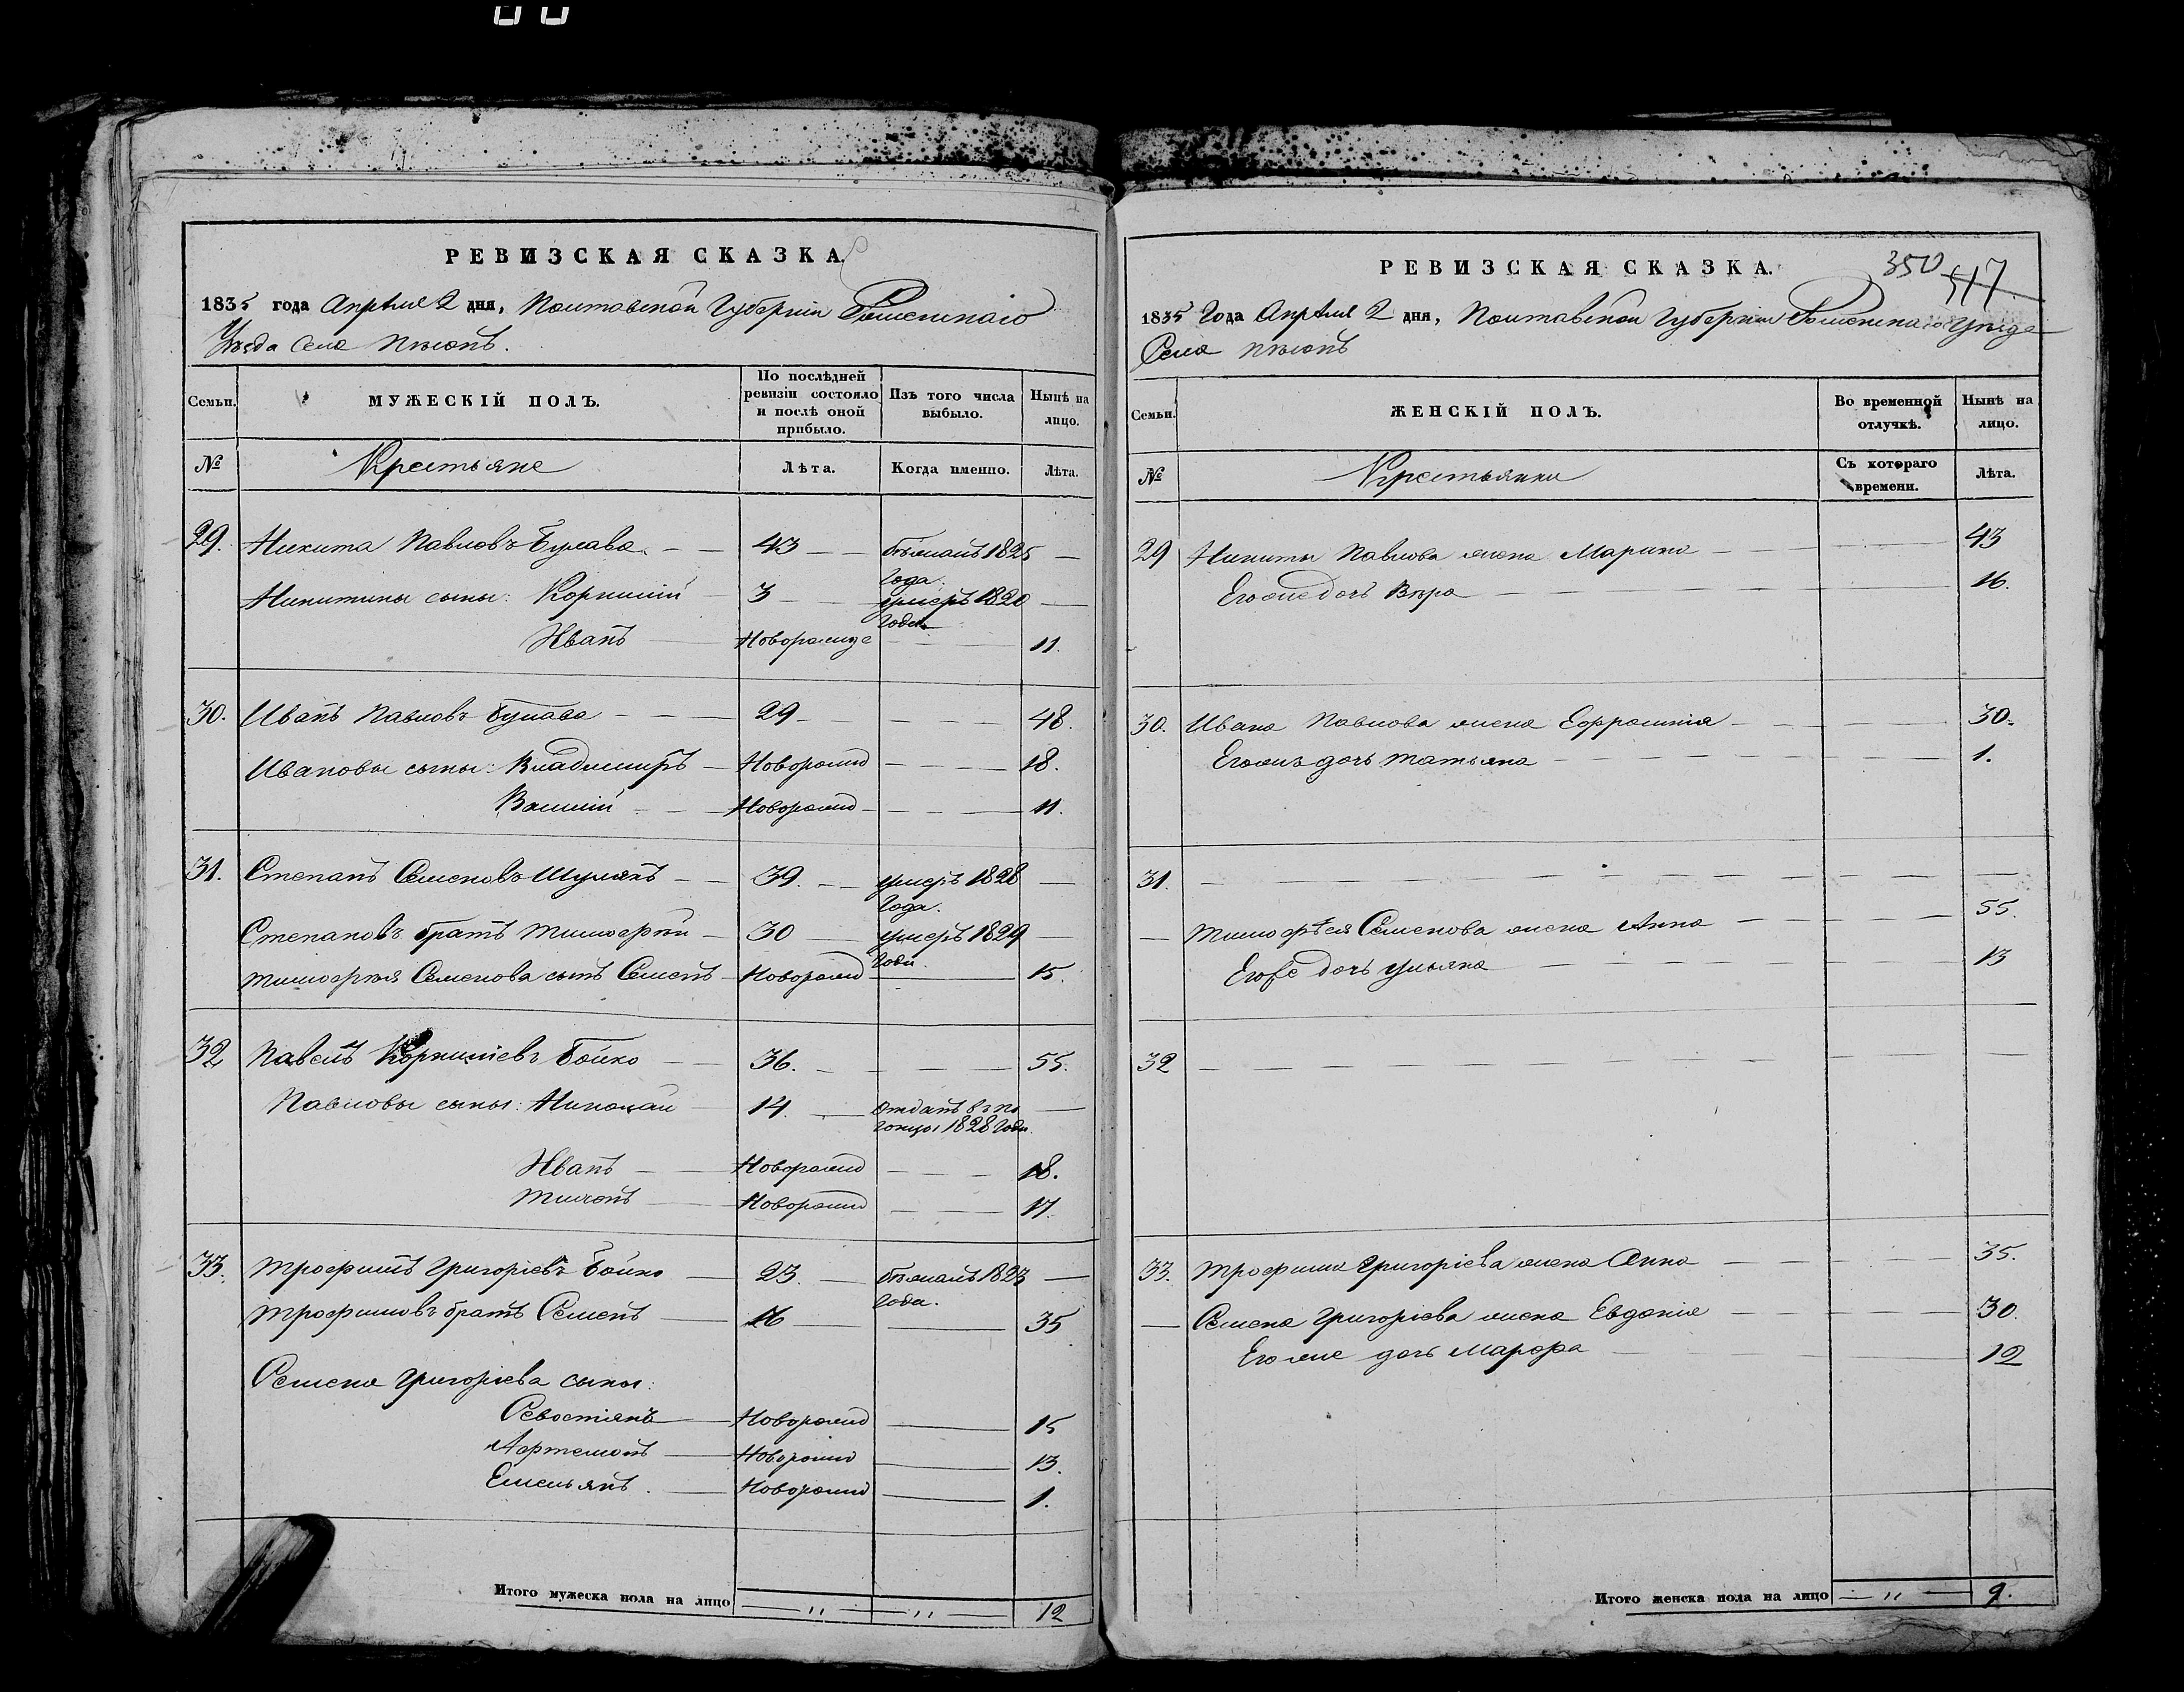 РЕВИЗСКАЯ СКАЗКА.
1835 года Апрѣля 2 дня, Полтавской Губерніи Роменскаго
Уѣзда Села
Семьи.
МУЖЕСКІЙ ПОЛЪ.
По послѣдней ревизіи состояло и послѣ оной прибыло.
Изъ того числа выбыло.
Нынѣ на лицо.
№ Крестьяне Лѣта. Когда именно. Лѣта.
29. Никита Павловъ Булава 43 бѣжалъ 1825 Года.
Никитины сыны: Корнилій 3 умеръ 1820 Года
Иванъ Новорожде 11.
30. Иванъ Павловъ Булава 29 48.
Ивановы сыны: Владимиръ Новорожд 18.
Василій Новорожд 11.
31. Степанъ Семеновъ 39. умеръ 1828 Года.
Степановъ братъ Тимофѣй 30 умеръ 1829 Года
Тимофѣя Семенова сынъ Семенъ Новорожд 15.
32 Павелъ Корниліевъ Бойко 36. 55.
Павловы сыны: Николай 14. Отданъ въ по
гонцы 1828 Года.
Иванъ Новорожд 18.
Новорожд 17.
33. Трофимъ Григоріевъ Бойко 23. бѣжалъ 1823 Года.
Трофимовъ братъ Семенъ 16 35
Семена Григоріева сыны:
Севостіянъ Новорожд 15
Артемонъ Новорожд 13.
Емельянъ. Новорожд 1.
Итого мужеска пола на лицо 12
РЕВИЗСКАЯ СКАЗКА.
350 517
1835 Года Апрѣля 2 дня, Полтавской Губерніи Роменскаго Уѣзда
Села
Семьи.
ЖЕНСКІЙ ПОЛЪ.
Во временной отлучкѣ.
Нынѣ на лицо.
№ Крестьянки Съ котораго времени. Лѣта.
29 Никиты Павлова жена Марина 43
Его же дочь Вѣра 16.
30. Ивана Павлова жена Ефросинія 30.
Его же дочь Татьяна 1.
31.
Тимофѣя Семенова жена Анна 55.
Его же дочь Ульяна 13
32
33. Трофима Григоріева жена Анна 35.
Семена Григоріева жена Евдокія 30.
Его же дочь Марфа 12
Итого женска пола на лицо 9.